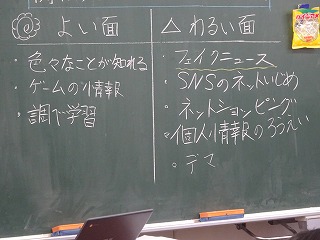 よい面
・色々なことが知れる
・ゲームの情報
・調べ学習
△わるい面
・フェイクニュース
・SNSのネットいじめ
・ネットショッピング
・個人情報のろうえい
・デマ